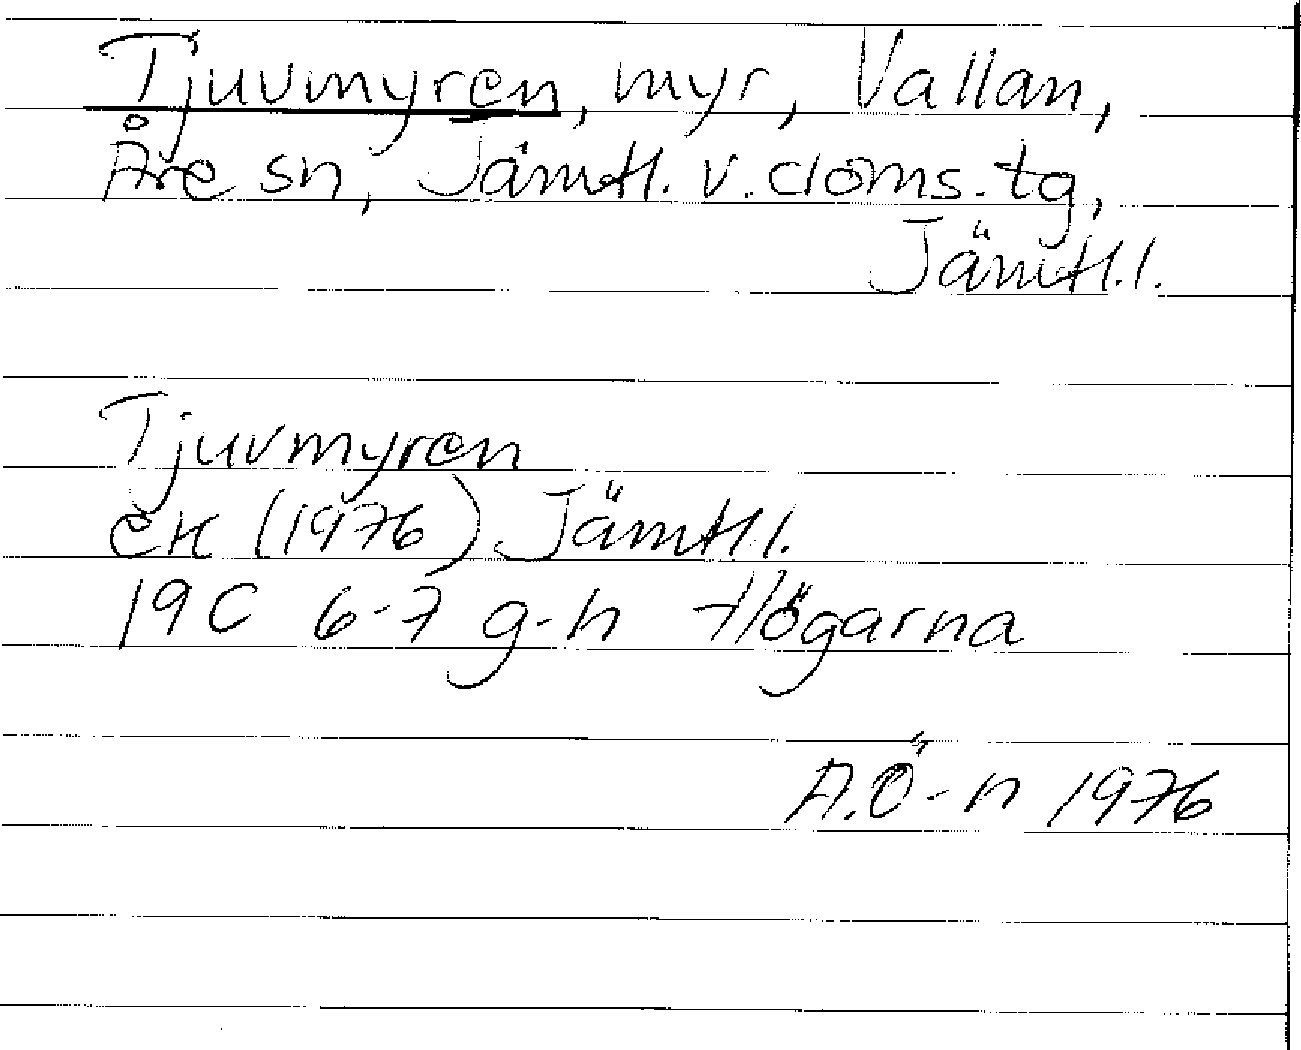 Tjuvmyren, myr, Vallan,
Åre sn, Jämtl. v. doms. tg,
Jämtl. l.
Tjuvmyren
ek (1976) Jämtl. l.
19C 6-7 g-h Högarna
A.Ö-n 1976